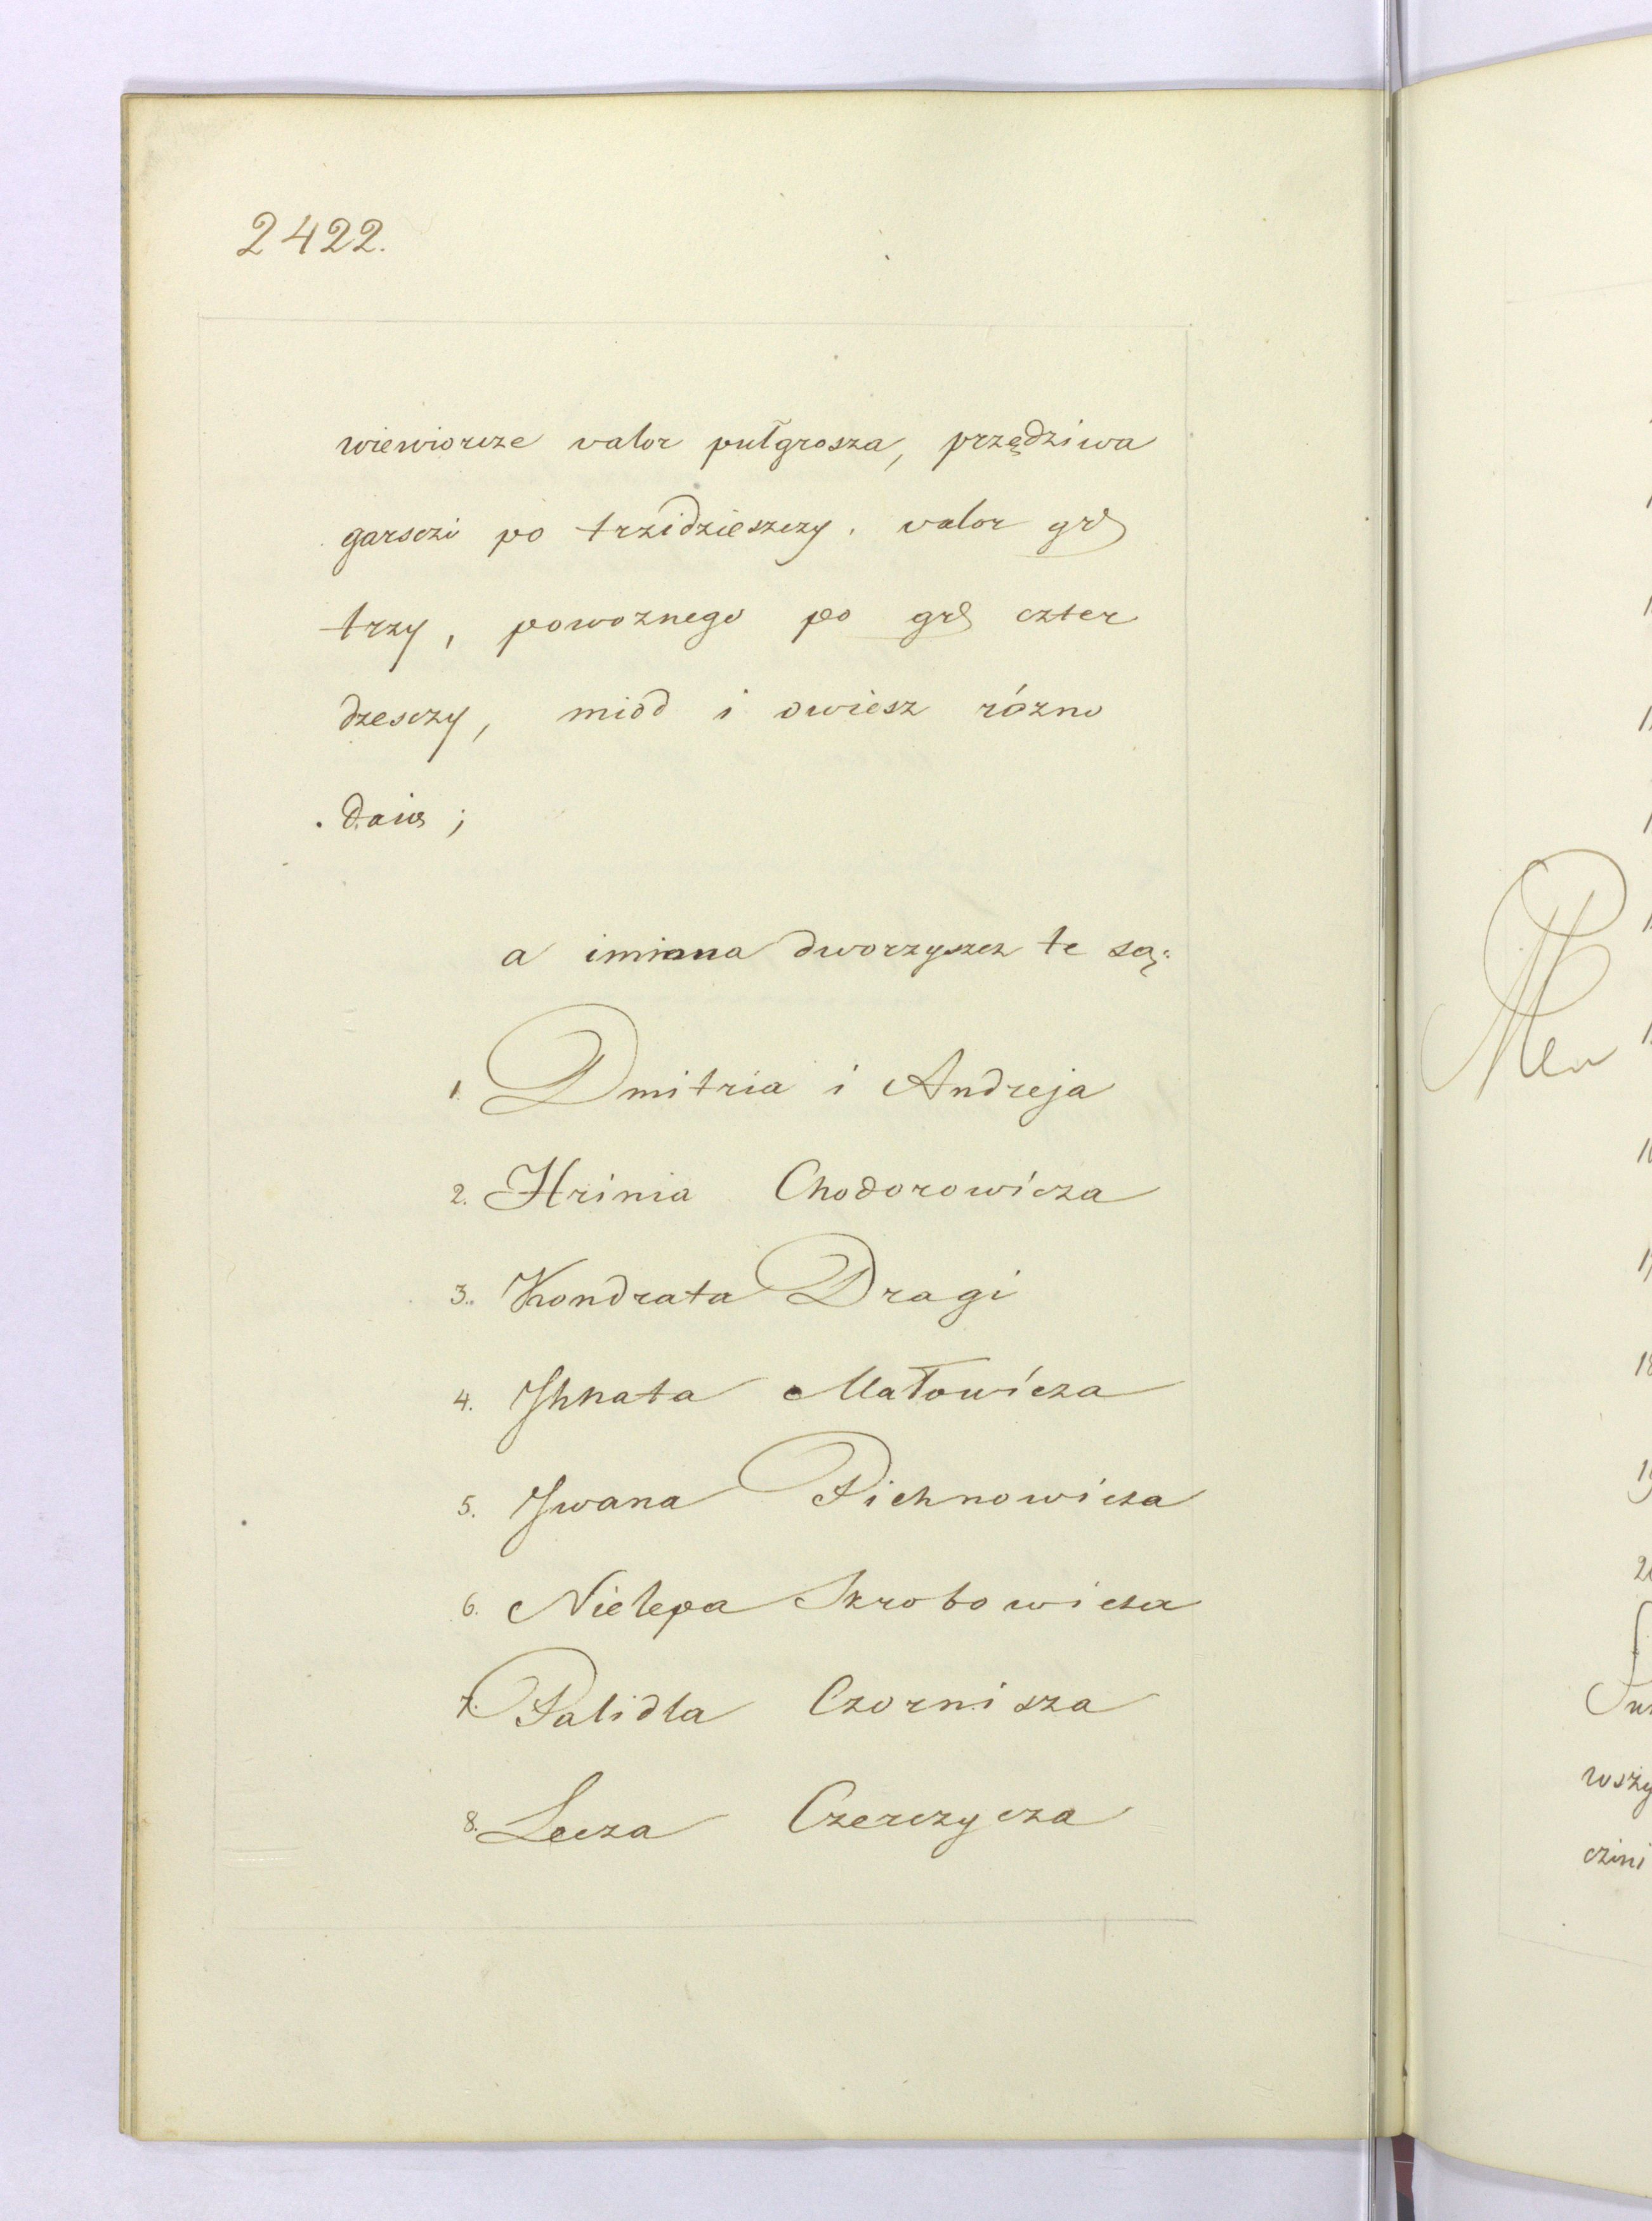 2422.
wiewiorcze valor pułgrosza, przędziwa
garsczi po trzidzieszczy, valor gr
trzy, powoznego po gr czter
dzesczy, miod i owiesz rózno
daią;
a imiona dworzyszcz te są:
1. Dmitria i Andreja
2. Hrinia Chodorowicza
3. Kondrata Dragi
4. Ihnata Małowicza
5. Iwana Pichnowicza
6. Nielepa Skrobowicza
7. Palidla Czornisza
8. Lecza Czerczycza